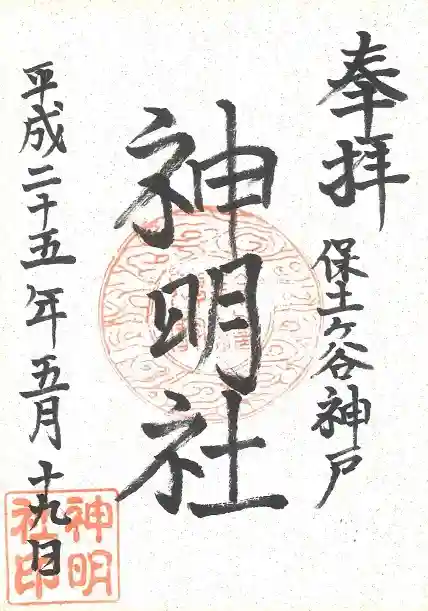 奉拝
保土ヶ谷神戸
神明社
平成二十五年五月十九日
神明
社印